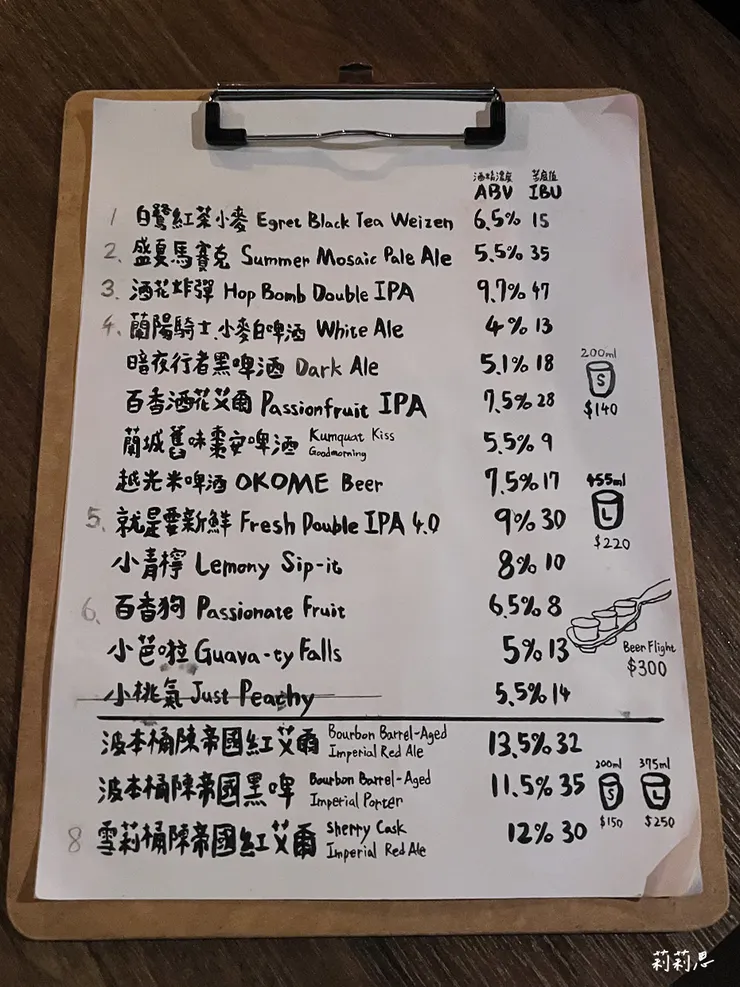 酒精濃度 苦度值
ABV IBU
1 白鷺紅茶小麥 Egret Black Tea Weizen 6.5% 15
2. 盛夏馬賽克 Summer Mosaic Pale Ale 5.5% 35
3. 酒花炸彈 Hop Bomb Double IPA 9.7% 47
4. 蘭陽騎士小麥白啤酒 White Ale 4% 13
暗夜行者黑啤酒 Dark Ale 5.1% 18
百香酒花艾爾 Passionfruit IPA 7.5% 28
蘭城舊味棗安啤酒 Kumquat Kiss Goodmorning 5.5% 9
越光米啤酒 OKOME Beer 7.5% 17
5. 就是要新鮮 Fresh Double IPA 4.0 9% 30
小青檸 Lemony Sip-it 8% 10
6. 百香狗 Passionate Fruit 6.5% 8
小芭啦 Guava-ty Falls 5% 13
小桃氣 Just Peachy 5.5% 14
200ml
S
$140
455ml
L
$220
Beer Flight
$300
波本桶陳帝國紅艾爾 Bourbon Barrel-Aged Imperial Red Ale 13.5% 32
波本桶陳帝國黑啤 Bourbon Barrel-Aged Imperial Porter 11.5% 35
8 雪莉桶陳帝國紅艾爾 Sherry Cask Imperial Red Ale 12% 30
200ml 375ml
S L
$150 $250
莉莉思